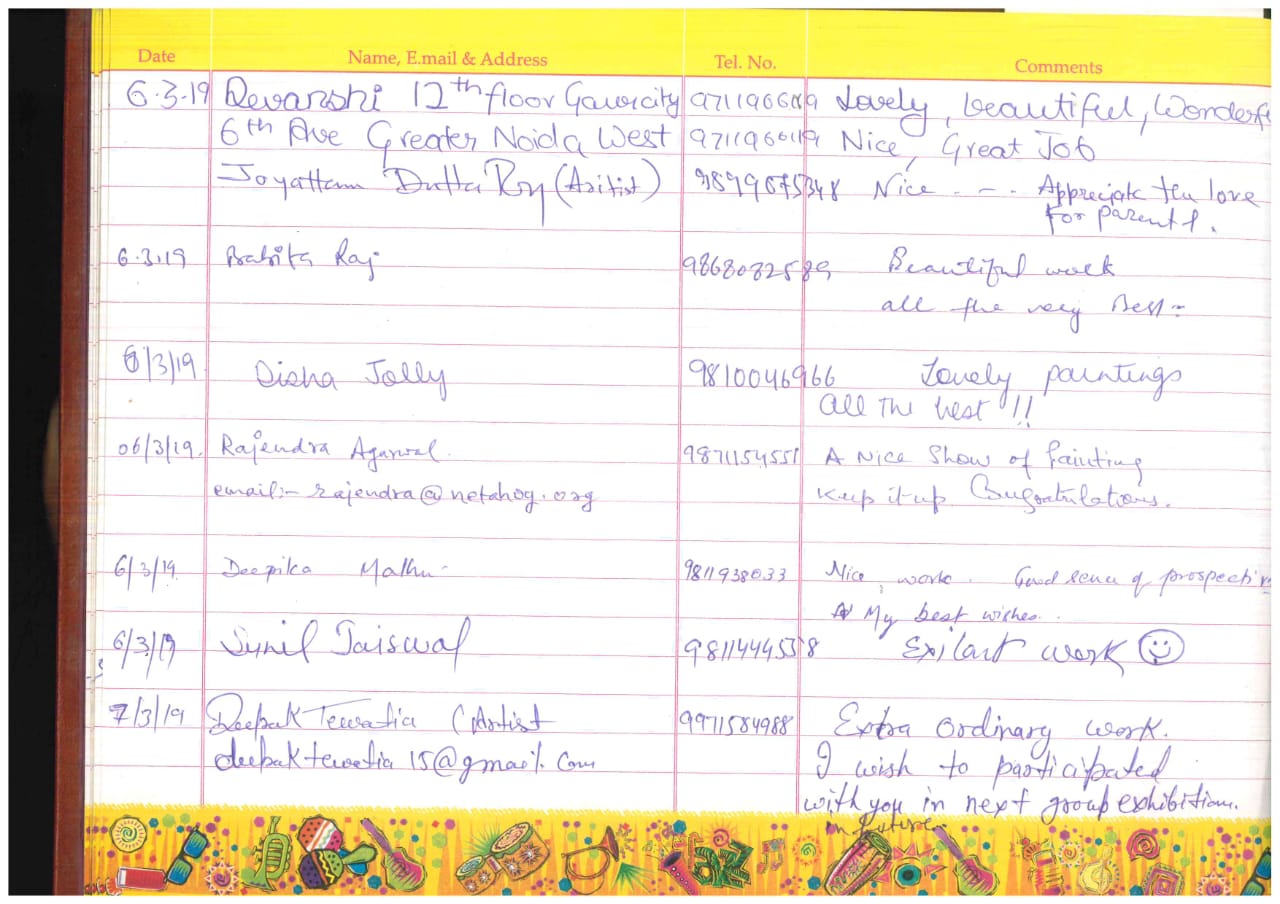 Date Name, E.mail & Address Tel. No. Comments
6.3.19 Devanshi 12th floor Gaurcity Lovely, beautiful, Wonderf
6th Ave Greater Noida West Nice, Great Job
Joyattam Dutta Roy (Aritist) Nice - - - Appreciate the love
for parents.
6.3.19 Babita Raj 9868082589 Beautiful work
all the very Best =
6/3/19 Disha Jolly 9810046966 Lovely paintings
All The best !!
06/3/19. Rajendra Agarwal. 9871154551 A Nice Show of Painting
email:- rajendra@netahog.org Keep it up Congratulations.
6/3/19 Deepika 9811938033 Nice work. Good sence of prospectiv
My best wishes..
6/3/19 Sunil Jaiswal 9811444538 Exilant work
7/3/19 Deepak Tewatia (Artist 9971584988 Extra Ordinary work.
deepaktewatia15@gmail.com I wish to participated
with you in next group exhibition.
in future.